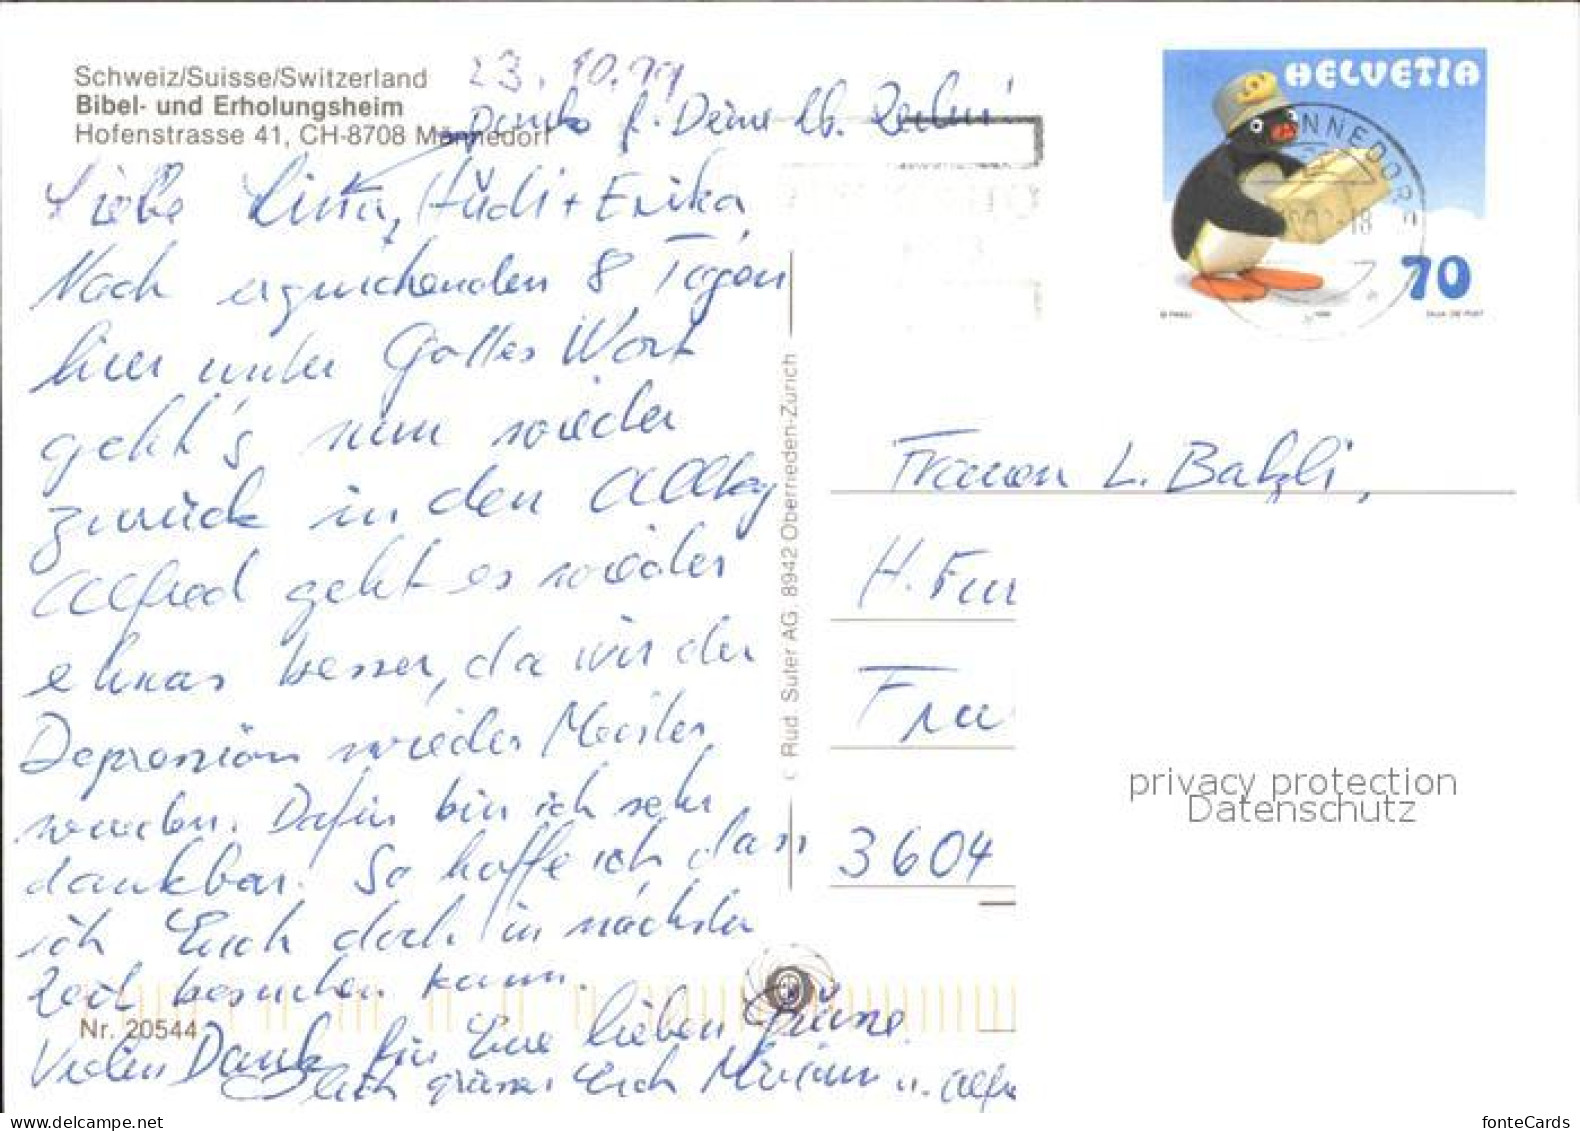 Schweiz/Suisse/Switzerland
Bibel- und Erholungsheim
Hofenstrasse 41, CH-8708 Männedorf
23.10.99
Danke f. Deine lb. Zeilen!
Liebe Lina, Hüdi + Erika
Nach erquickenden 8 Tagen
hier unter Gottes Wort
geht's nun wieder
zurück in den Alltag
Alfred geht es wieder
etwas besser, da wir der
Depression wieder Meister
wurden. Dafür bin ich sehr
dankbar. So hoffe ich dass
ich Euch doch in nächster
Zeit besuchen kann.
Nr. 20544
Vielen Dank für Eure lieben Grüsse.
grüssen Euch Miriam u. Alfre
© Rud. Suter AG. 8942 Oberrieden-Zürich
HELVETIA
70
NNEDORF
-18
Frauen L. Batzli,
H. Fur
Frau
3604
privacy protection
Datenschutz
www.delcampe.net
fonteCards